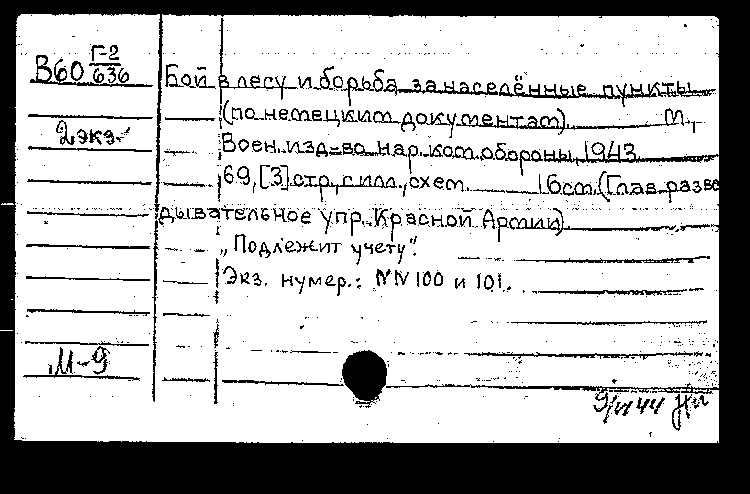 В60 Г-2/636
Бой в лесу и борьба за населённые пункты
(по немецким документам). М.,
2 экз.
Воен. изд-во нар. ком. обороны, 1943.
69, [3] стр., с илл., схем. 16 см. (Глав. разве
дывательное упр. Красной Армии).
„Подлежит учету".
Экз. нумер.: NN 100 и 101.
М-9